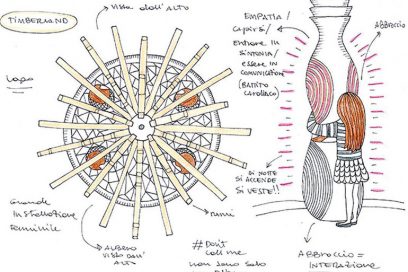 TIMBERLAND
VISTA DALL'ALTO
LOGO
GRANDE
INSTALLAZIONE
FEMMINILE
ALBERO
VISTO DALL'
ALTO
RAMI
#DON'T
CALL ME
NON SONO SOLO
EMPATIA/
CAPIRSI/
ENTRARE IN
SINTONIA/
ESSERE IN
COMUNICAZIONE
(BATTITO
CARDIACO)
ABBRACCIO
DI NOTTE
SI ACCENDE
SI VESTE!!
ABBRACCIO =
INTERAZIONE